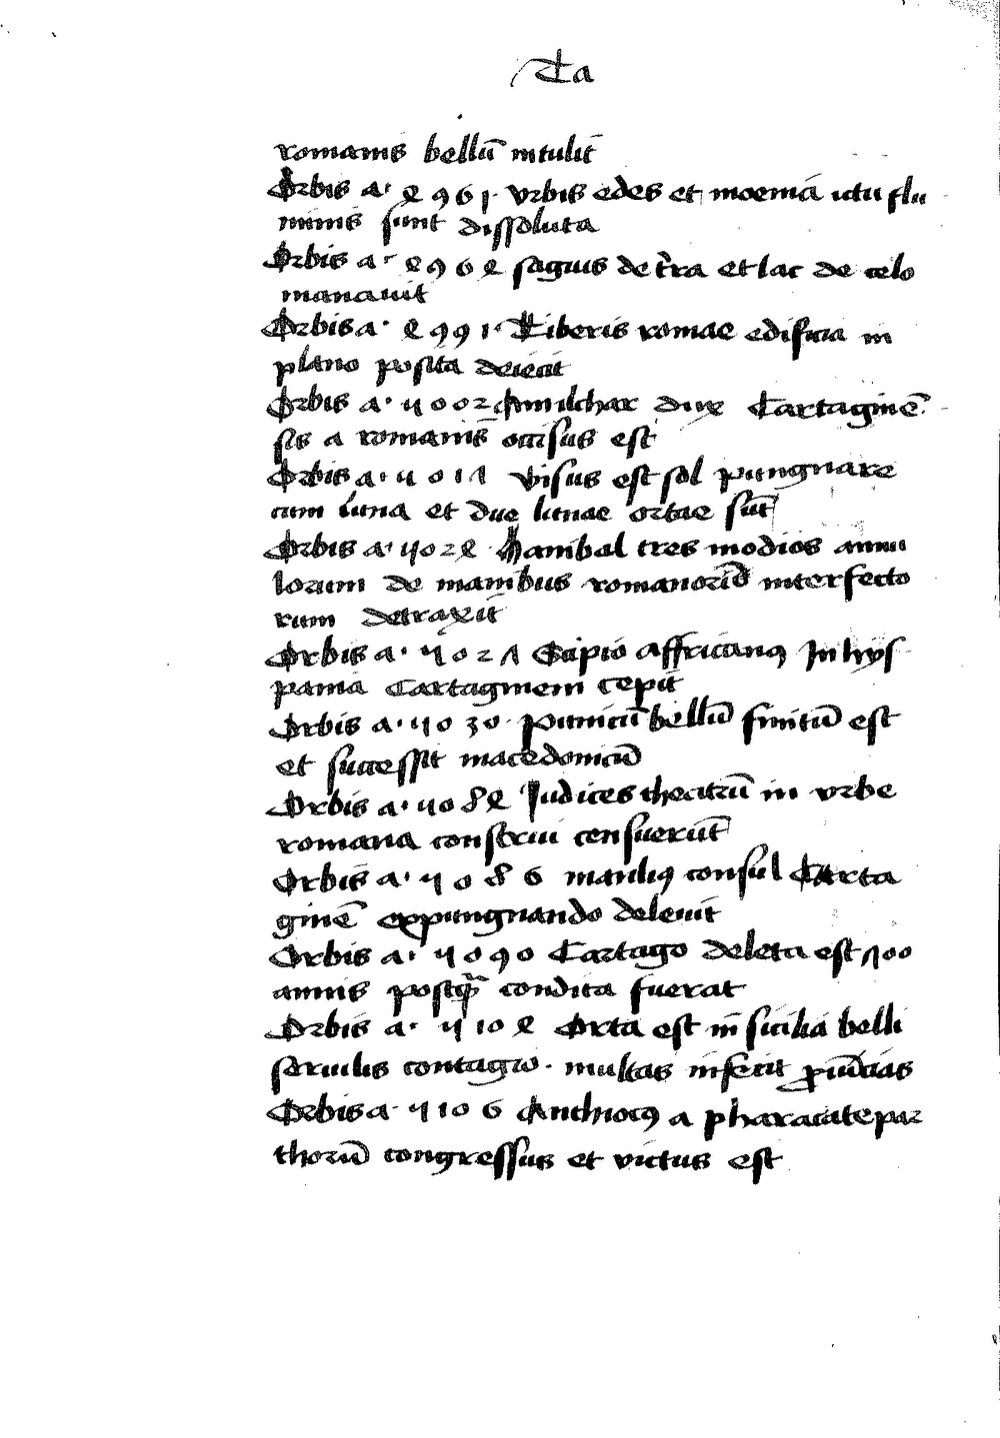 Ta
romanis bellū intulit
Orbis a. 4961. vrbis edes et moenia ictu flu
minis sunt dissoluta
Orbis a. 4964 saguis de t̄ra et lac de celo
manauit
Orbis a. 4991. Tiberis romae edificia in
plano posita deiecit
Orbis a. 5002 Amilchar dux Cartaginē
sis a romanis occisus est
Orbis a. 5017 visus est sol pungnare
cum luna et due lunae ortae sūt
Orbis a. 5024 Hanibal tres modios annu
lorum de manibus romanorū interfecto
rum detraxit
Orbis a. 5027 Scipio affricanꝯ In hys
pania Cartaginem cepit
Orbis a. 5030. punicū bellū finitū est
et successit macedonicū
Orbis a. 5084 Iudices theatrū in vrbe
romana construi censuerūt
Orbis a. 5086 manliꝯ consul Carta
ginē expungnando deleuit
Orbis a. 5090 Cartago deleta est 700
annis postq̄ condita fuerat
Orbis a. 5104 Orta est in sicilia belli
seruilis contagio. multas infecit ꝓuīcias
Orbis a. 5106 Anthiocꝯ a pharacate par
thorū congressus et victus est